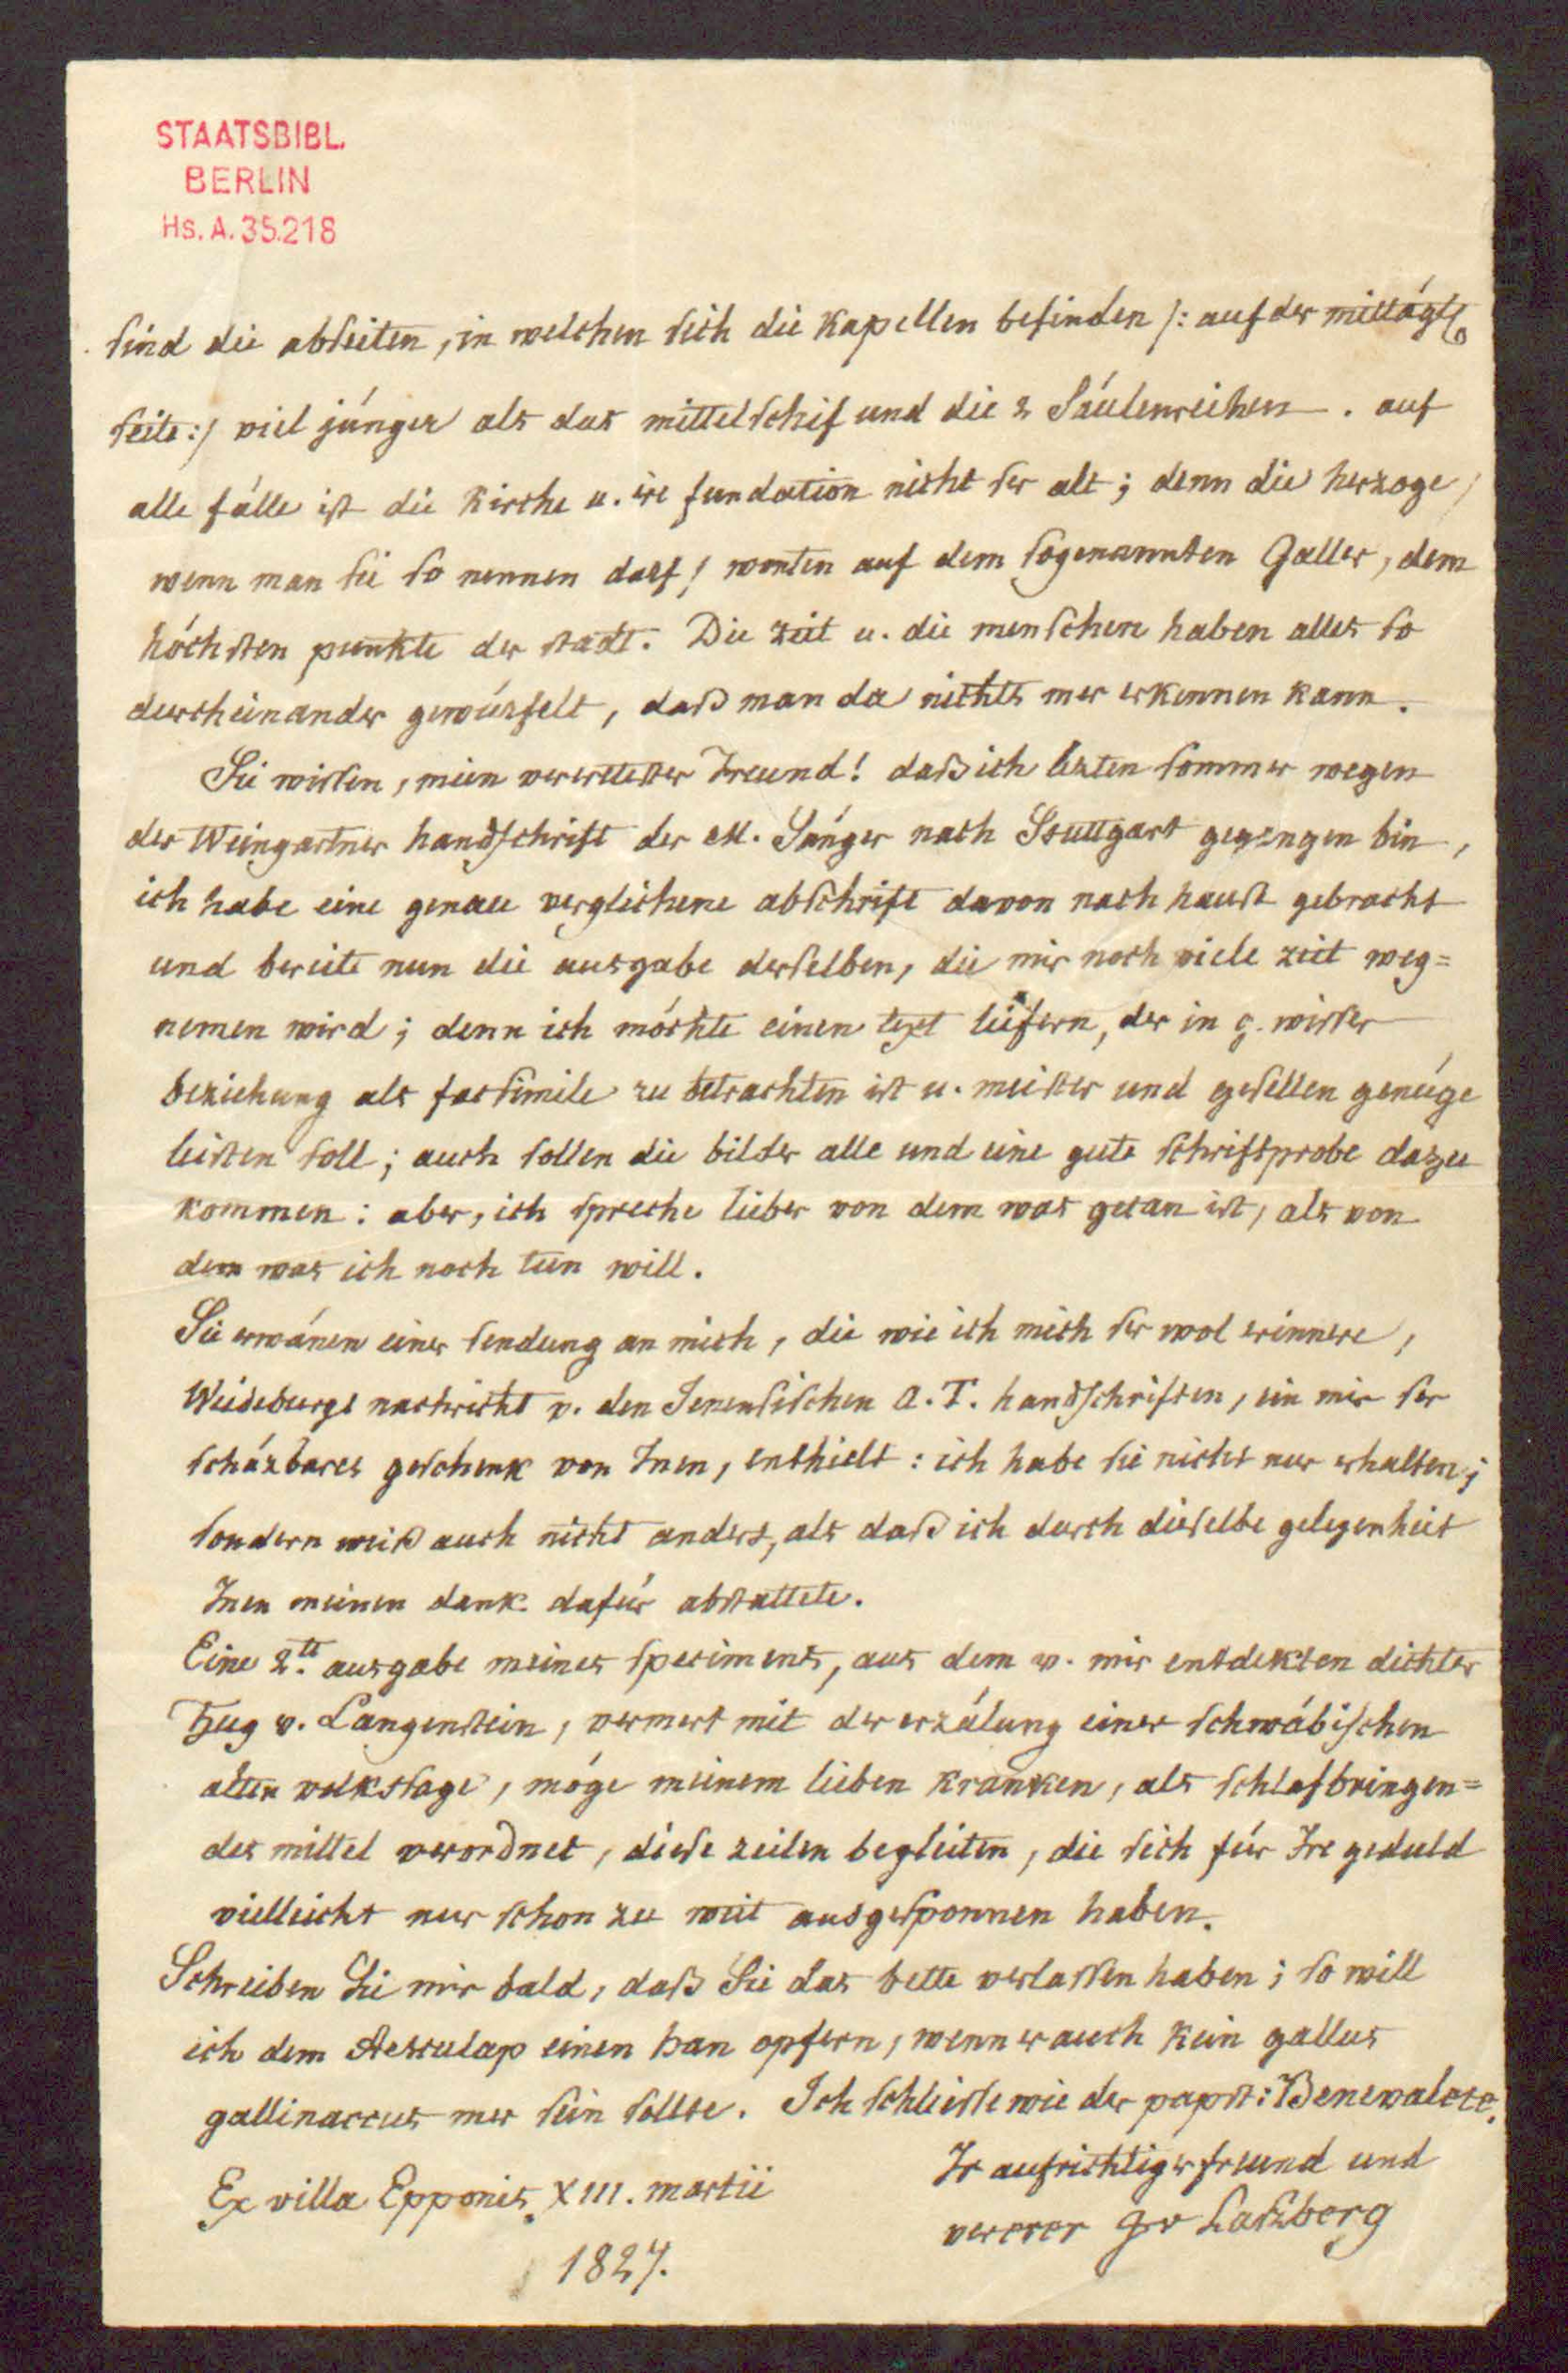 STAATSBIBL.
BERLIN
Hs. A. 35.218
sind die abseiten, in welchen sich die Kapellen befinden /: auf der mittägl.
seite :/ viel jünger als das mittelschif und die 2 Säulenreihen. auf
alle fälle ist die Kirche u. ire fundation nicht ser alt; denn die herzoge,
wenn man sie so nennen darf, wonten auf dem sogenannten Galler, dem
höchsten punkte der stadt. Die zeit u. die menschen haben alles so
durcheinander gewürfelt, daß man da nichts mer erkennen kann.
Sie wissen, mein verertester Freund! daß ich lezten sommer wegen
der Weingartner handschrift der M. Sänger nach Stuttgart gegangen bin,
ich habe eine genau verglichene abschrift davon nach hauße gebracht
und bereite nun die ausgabe derselben, die mir noch viele zeit weg=
nemen wird; denn ich möchte einen text liefern, der in g. wisser
beziehung als facsimile zu betrachten ist u. meister und gesellen genüge
leisten soll; auch sollen die bilder alle und eine gute schriftprobe dazu
kommen: aber, ich spreche lieber von dem was getan ist, als von
dem was ich noch tun will.
Sie erwänen einer sendung an mich, die wie ich mich ser wol erinnere,
Wiedeburgs nachricht v. den Jenensischen A. T. handschriften, ein mir ser
schäzbares geschenk von Inen, enthielt: ich habe sie nicht nur erhalten;
sondern weiß auch nicht anders, als daß ich durch dieselbe gelegenheit
Inen meinen dank dafür abstattete.
Eine 2.te ausgabe meines speciments, aus dem v. mir entdekten dichter
Hug v. Langenstein, vermert mit der erzälung einer schwäbischen
alten volkssage, möge meinem lieben kranken, als schlafbringen=
des mittel verordnet, diese zeilen begleiten, die sich für Ire geduld
vielleicht nur schon zu weit ausgesponnen haben.
Schreiben Sie mir bald, daß Sie das bette verlassen haben; so will
ich dem Aesculap einen han opfern, wenn er auch kein gallus
gallinaceus mer sein sollte. Ich schliesse wie der papst: Benevalete.
Ir aufrichtiger freund und
vererer JvLaßberg
Ex villa Epponis, XIII. martii
1827.